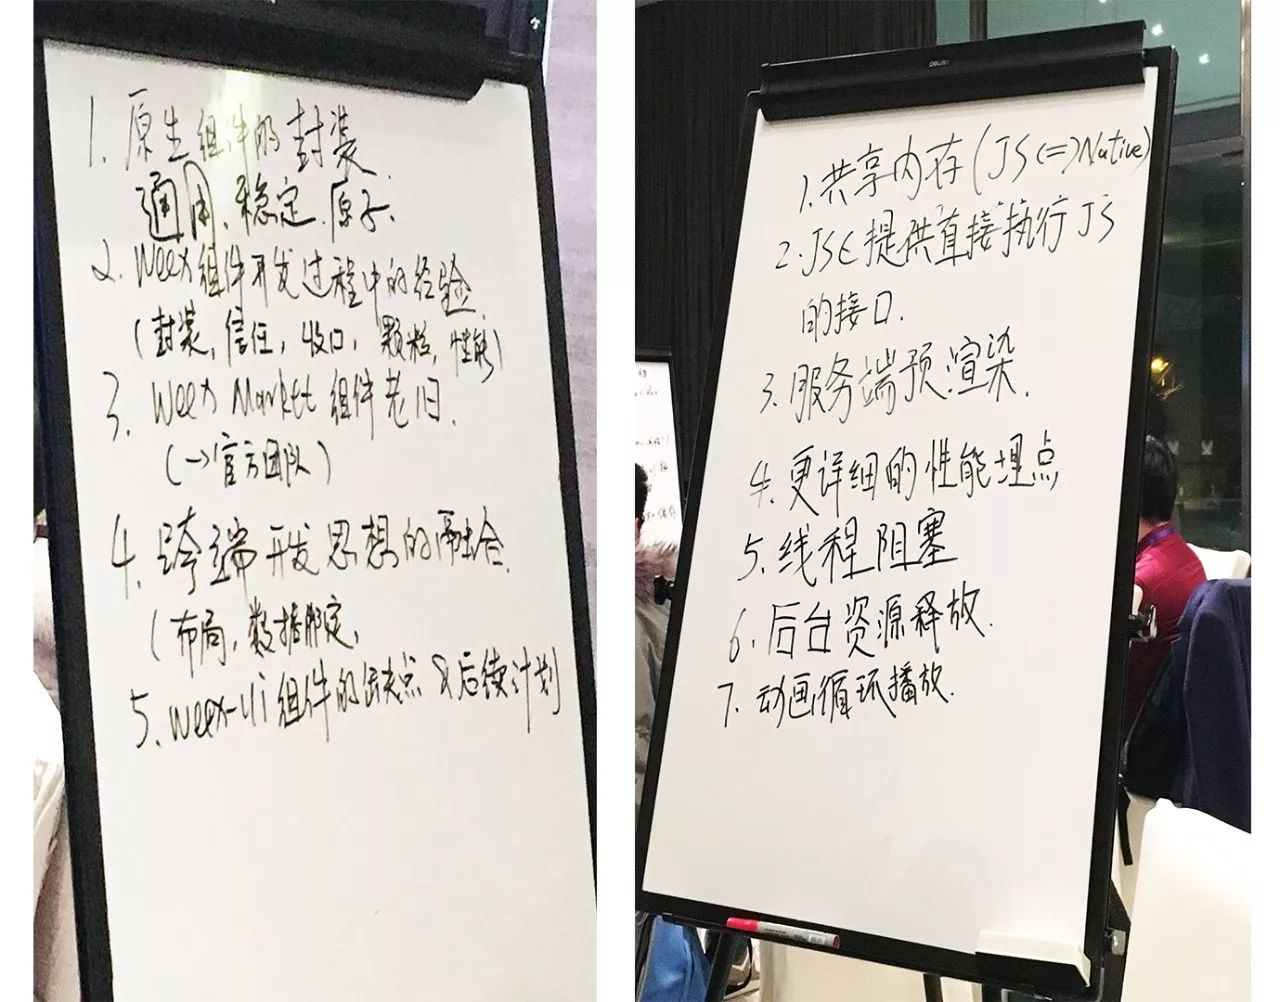 1. 原生组件的封装
通用、稳定、原子.
2. Weex组件开发过程中的经验
(封装, 信任, 收口, 颗粒, 性能)
3. Weex Market 组件老旧.
(→官方团队)
4. 跨端开发思想的融合.
(布局, 数据绑定,
5. weex-ui 组件的优缺点 & 后续计划
deli
1. 共享内存 (JS <=> Native)
2. JSC 提供"直接"执行 JS
的接口.
3. 服务端预渲染.
4. 更详细的性能埋点
5. 线程阻塞
6. 后台资源释放.
7. 动画循环播放.